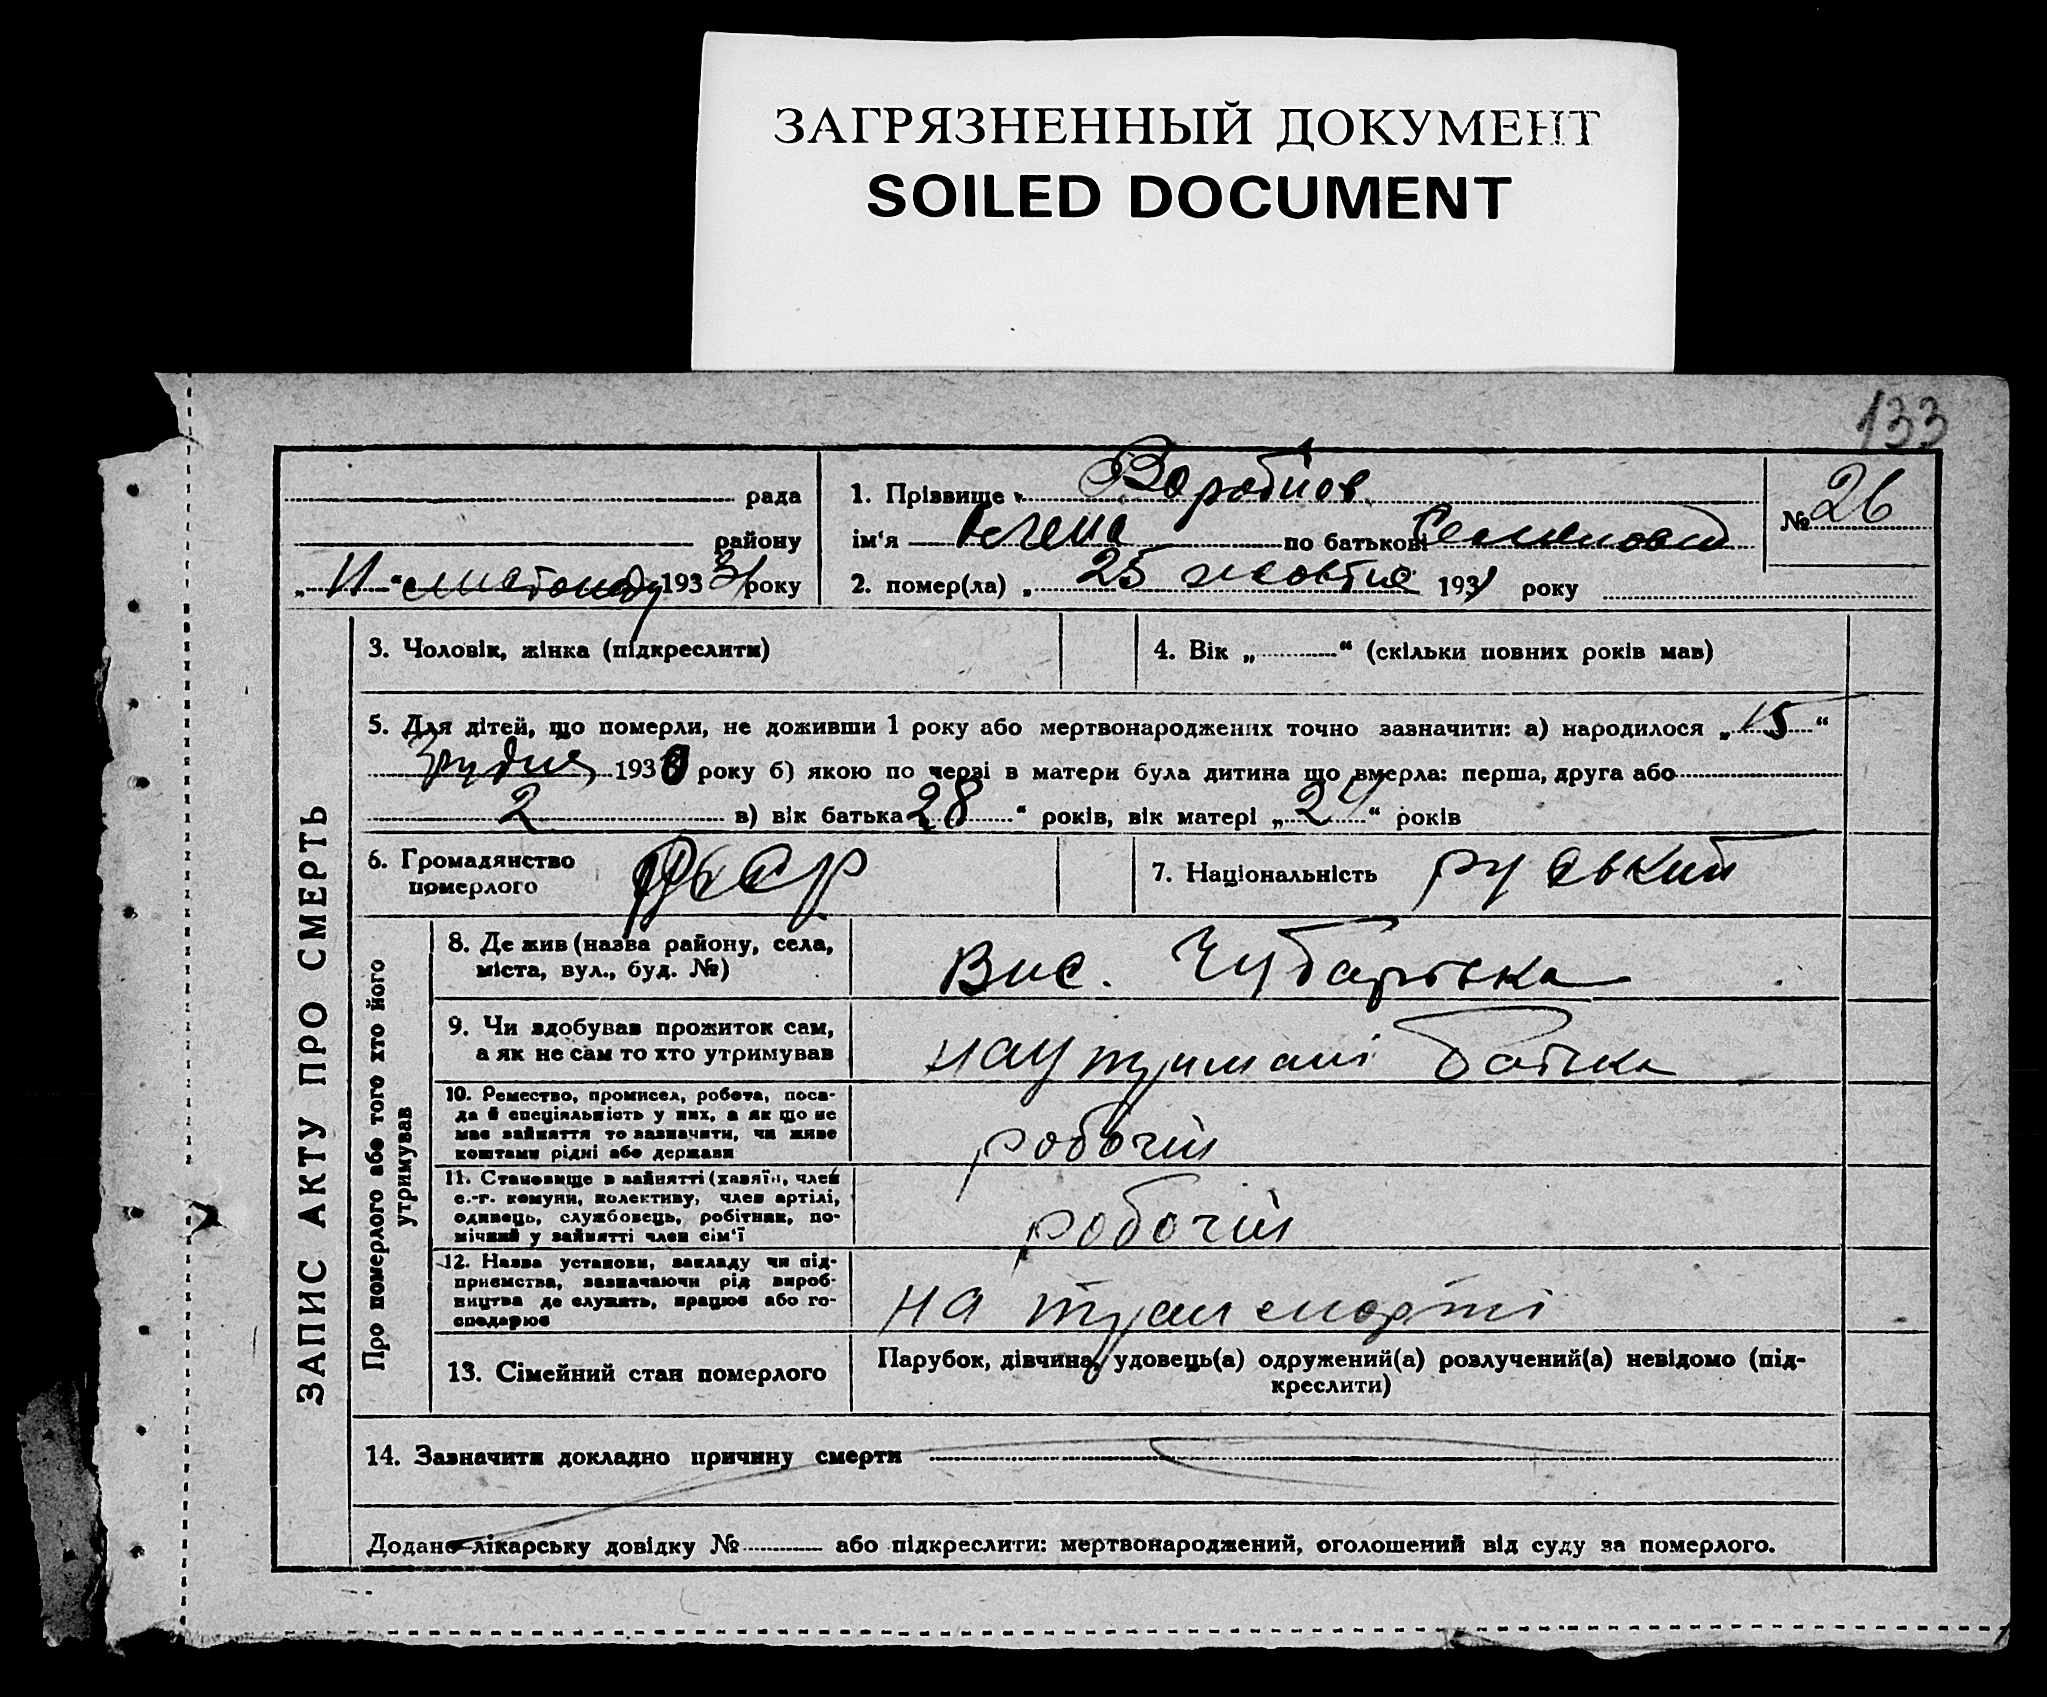 ЗАГРЯЗНЕННЫЙ ДОКУМЕНТ
SOILED DOCUMENT
133
рада
району
„ 11 “ листопаду 1931 року
1. Прізвище Воробйов
ім'я по батькові Семенович
2. помер(ла) „ 25 жовтня 1931 року
№ 26
ЗАПИС АКТУ ПРО СМЕРТЬ
3. Чоловік, жінка (підкреслити)
4. Вік „ “ (скільки повних років мав)
5. Для дітей, що померли, не доживши 1 року або мертвонароджених точно зазначити: а) народилося „ 15 “
Грудня 1930 року б) якою по черзі в матери була дитина що вмерла: перша, друга або
2 в) вік батька 28 “ років, вік матері „ 24 “ років
6. Громадянство
померлого
7. Національність руський
Про померлого або того хто його
утримував
8. Де жив (назва району, села,
міста, вул., буд. №)
Вис. Чубарівка
9. Чи здобував прожиток сам,
а як не сам то хто утримував
на утримані батька
10. Ремество, промисел, робота, поса-
да й спеціяльність у них, а як що не
має зайняття то зазначити, чи живе
коштами рідні або держави
робочій
11. Становище в зайнятті (хазяїн, член
с.-г. комуни, колективу, член артілі,
одинець, службовець, робітник, по-
мічний у зайнятті член сім'ї
робочій
12. Назва установи, закладу чи під-
приємства, зазначаючи рід вироб-
ництва де служить, працює або го-
сподарює
на транспорті
13. Сімейний стан померлого
Парубок, дівчина, удовець(а) одружений(а) розлучений(а) невідомо (під-
креслити)
14. Зазначити докладно причину смерти
Додано лікарську довідку № або підкреслити: мертвонароджений, оголошений від суду за померлого.